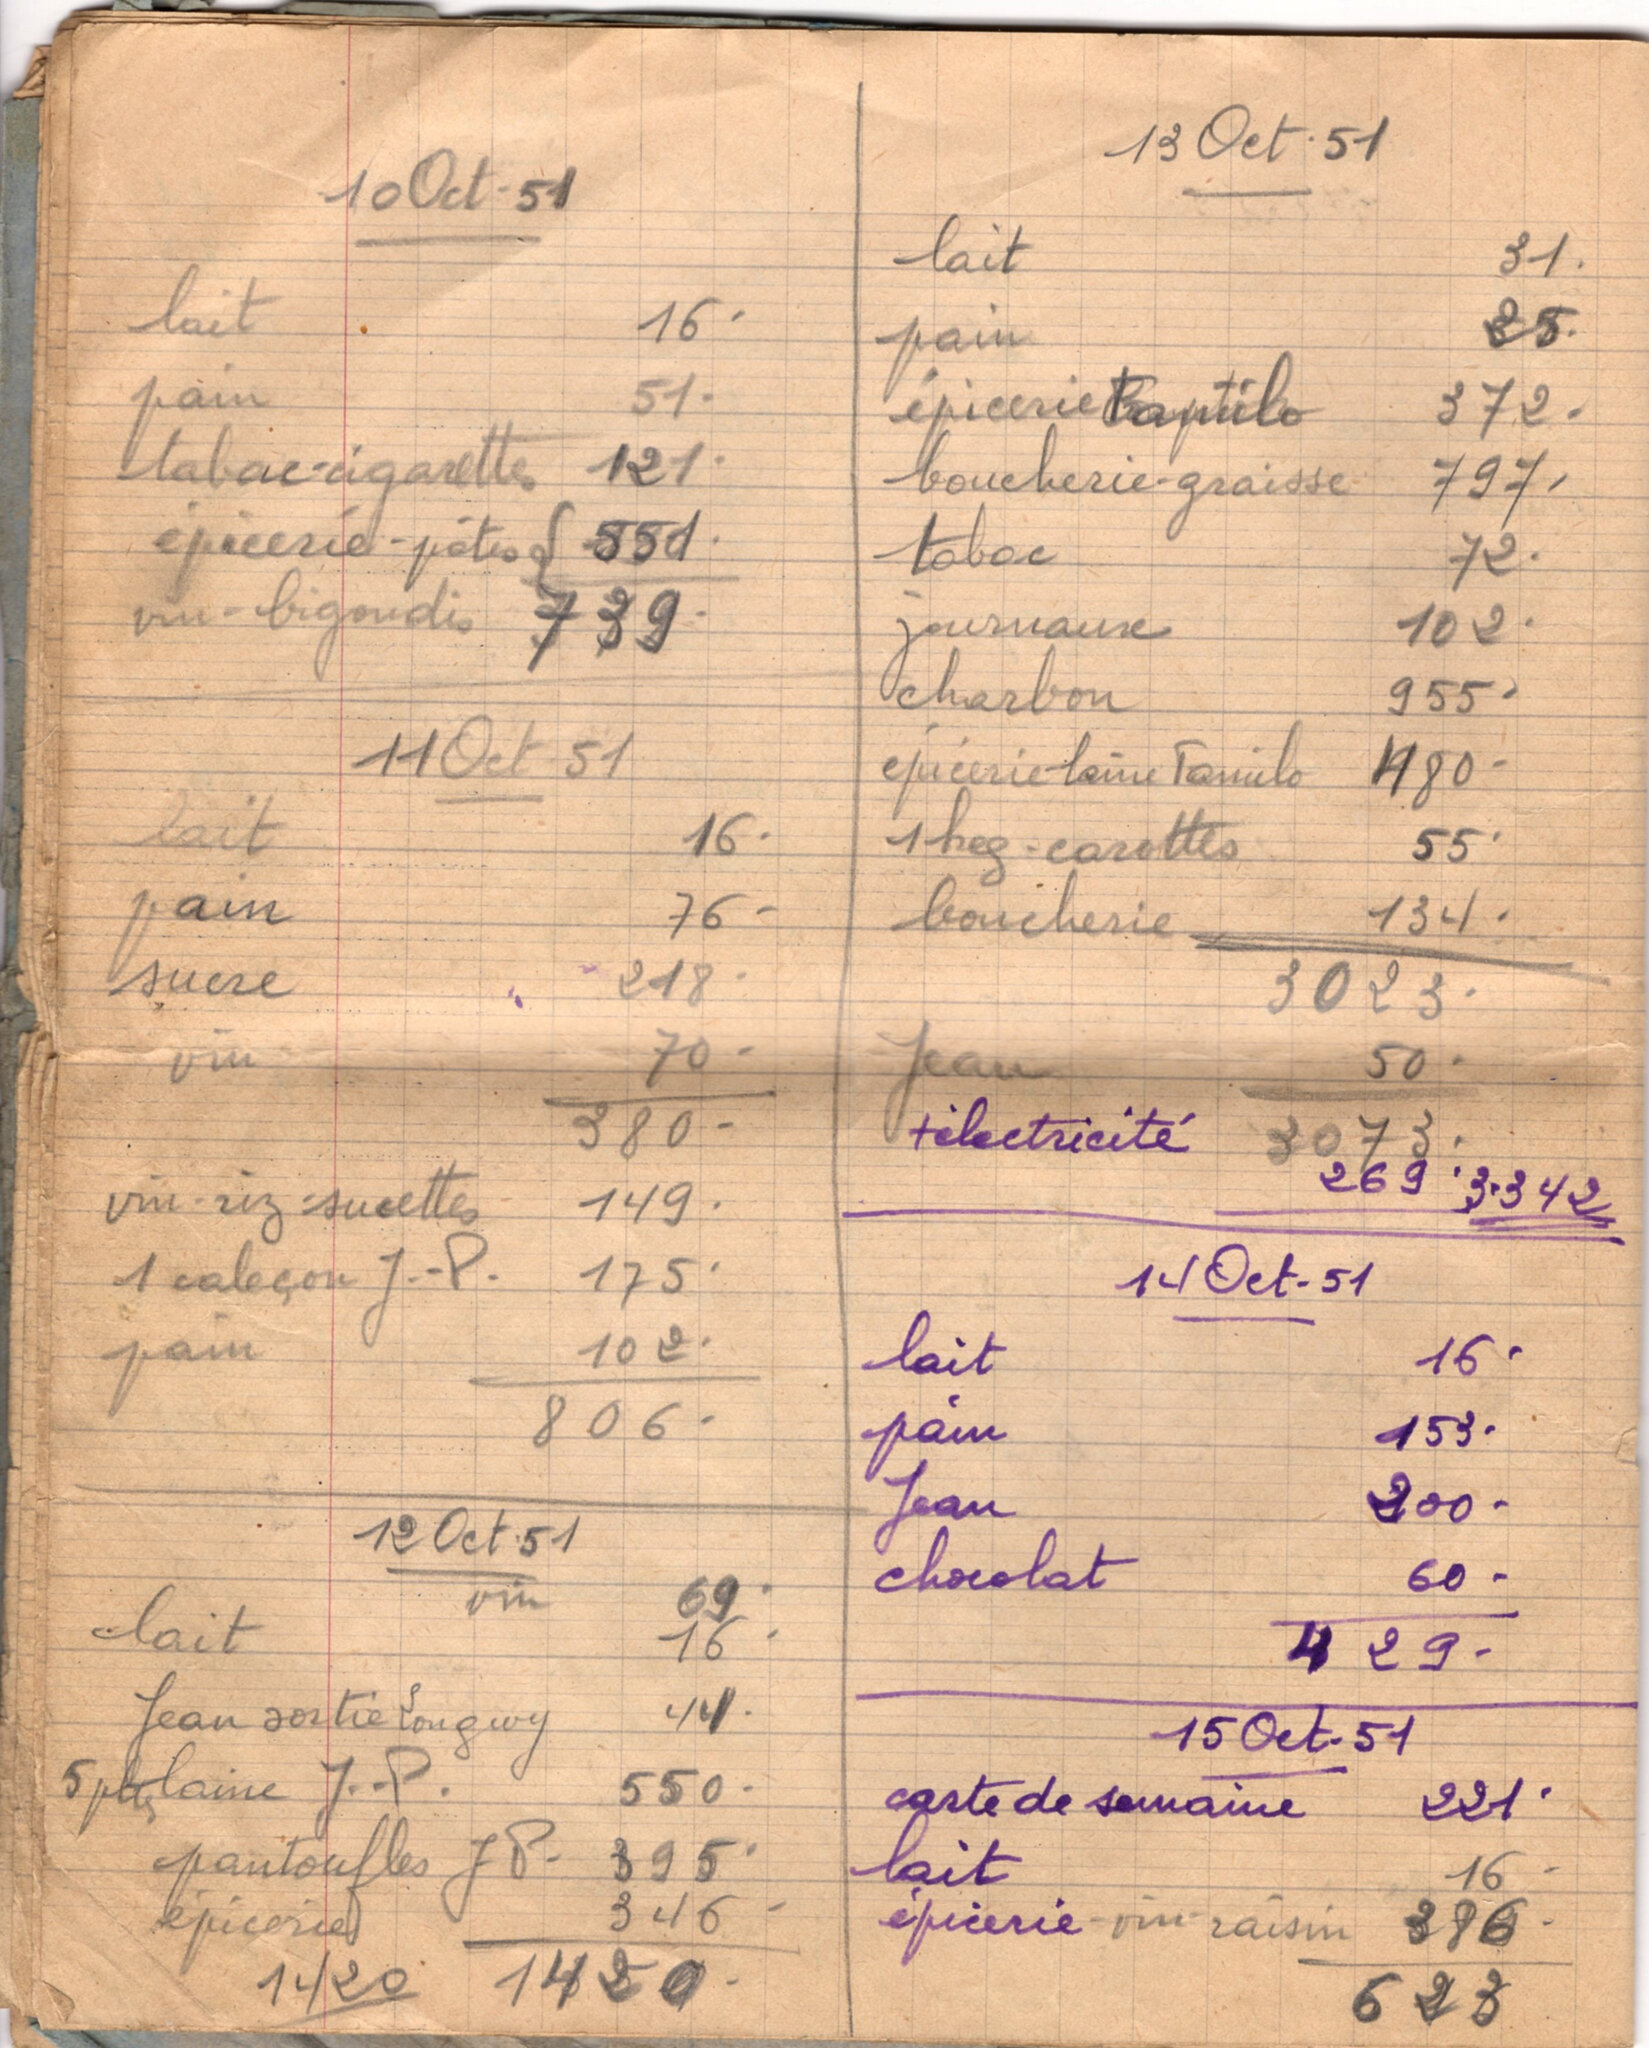 10 Oct. 51
lait 16.
pain 51.
tabac-cigarettes 121.
épicerie-pâtes 551.
vin-bigoudis 739.
11 Oct. 51
lait 16.
pain 76-
sucre 218.
vin 70-
380-
vin-riz-sucettes 149.
1 caleçon J.-P. 175.
pain 102.
806.
12 Oct. 51
vin 69.
lait 16.
Jean sortie Longwy 44.
5 laine J.-P. 550.
pantoufles J P. 395.
épicerie 346-
1420 1420.
13 Oct. 51
lait 31.
pain 25.
épicerie 372.
boucherie-graisse 797.
tabac 72.
journaux 102.
charbon 955.
épicerie-laine 480-
1 kg-carottes 55.
boucherie 134.
3023.
Jean 50.
3073.
+électricité
269. 3.342
14 Oct. 51
lait 16.
pain 153.
Jean 200-
chocolat 60-
429-
15 Oct. 51
carte de semaine 221.
lait 16-
épicerie-vin-raisin 386-
623